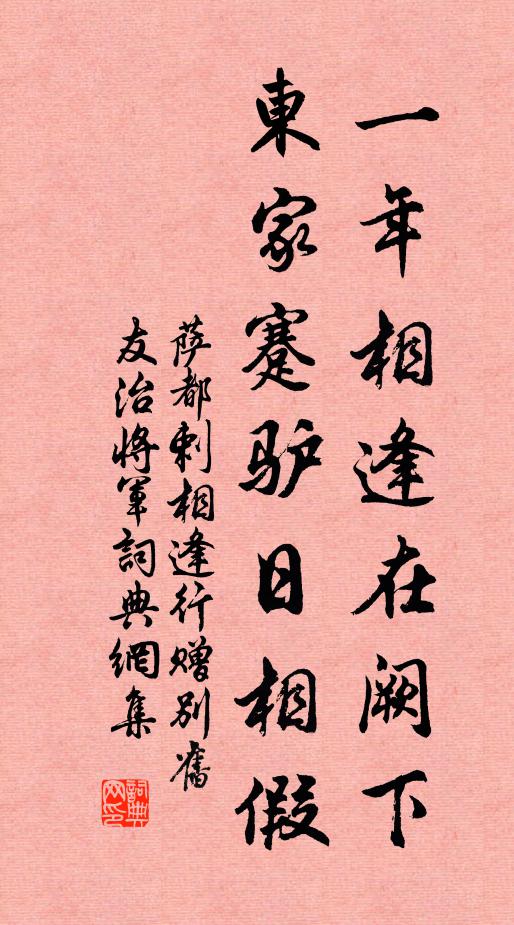 一年相逢在阙下
東家蹇驴日相假
萨都剌相逢行赠别舊
友治将軍詞典網集
詞典网印